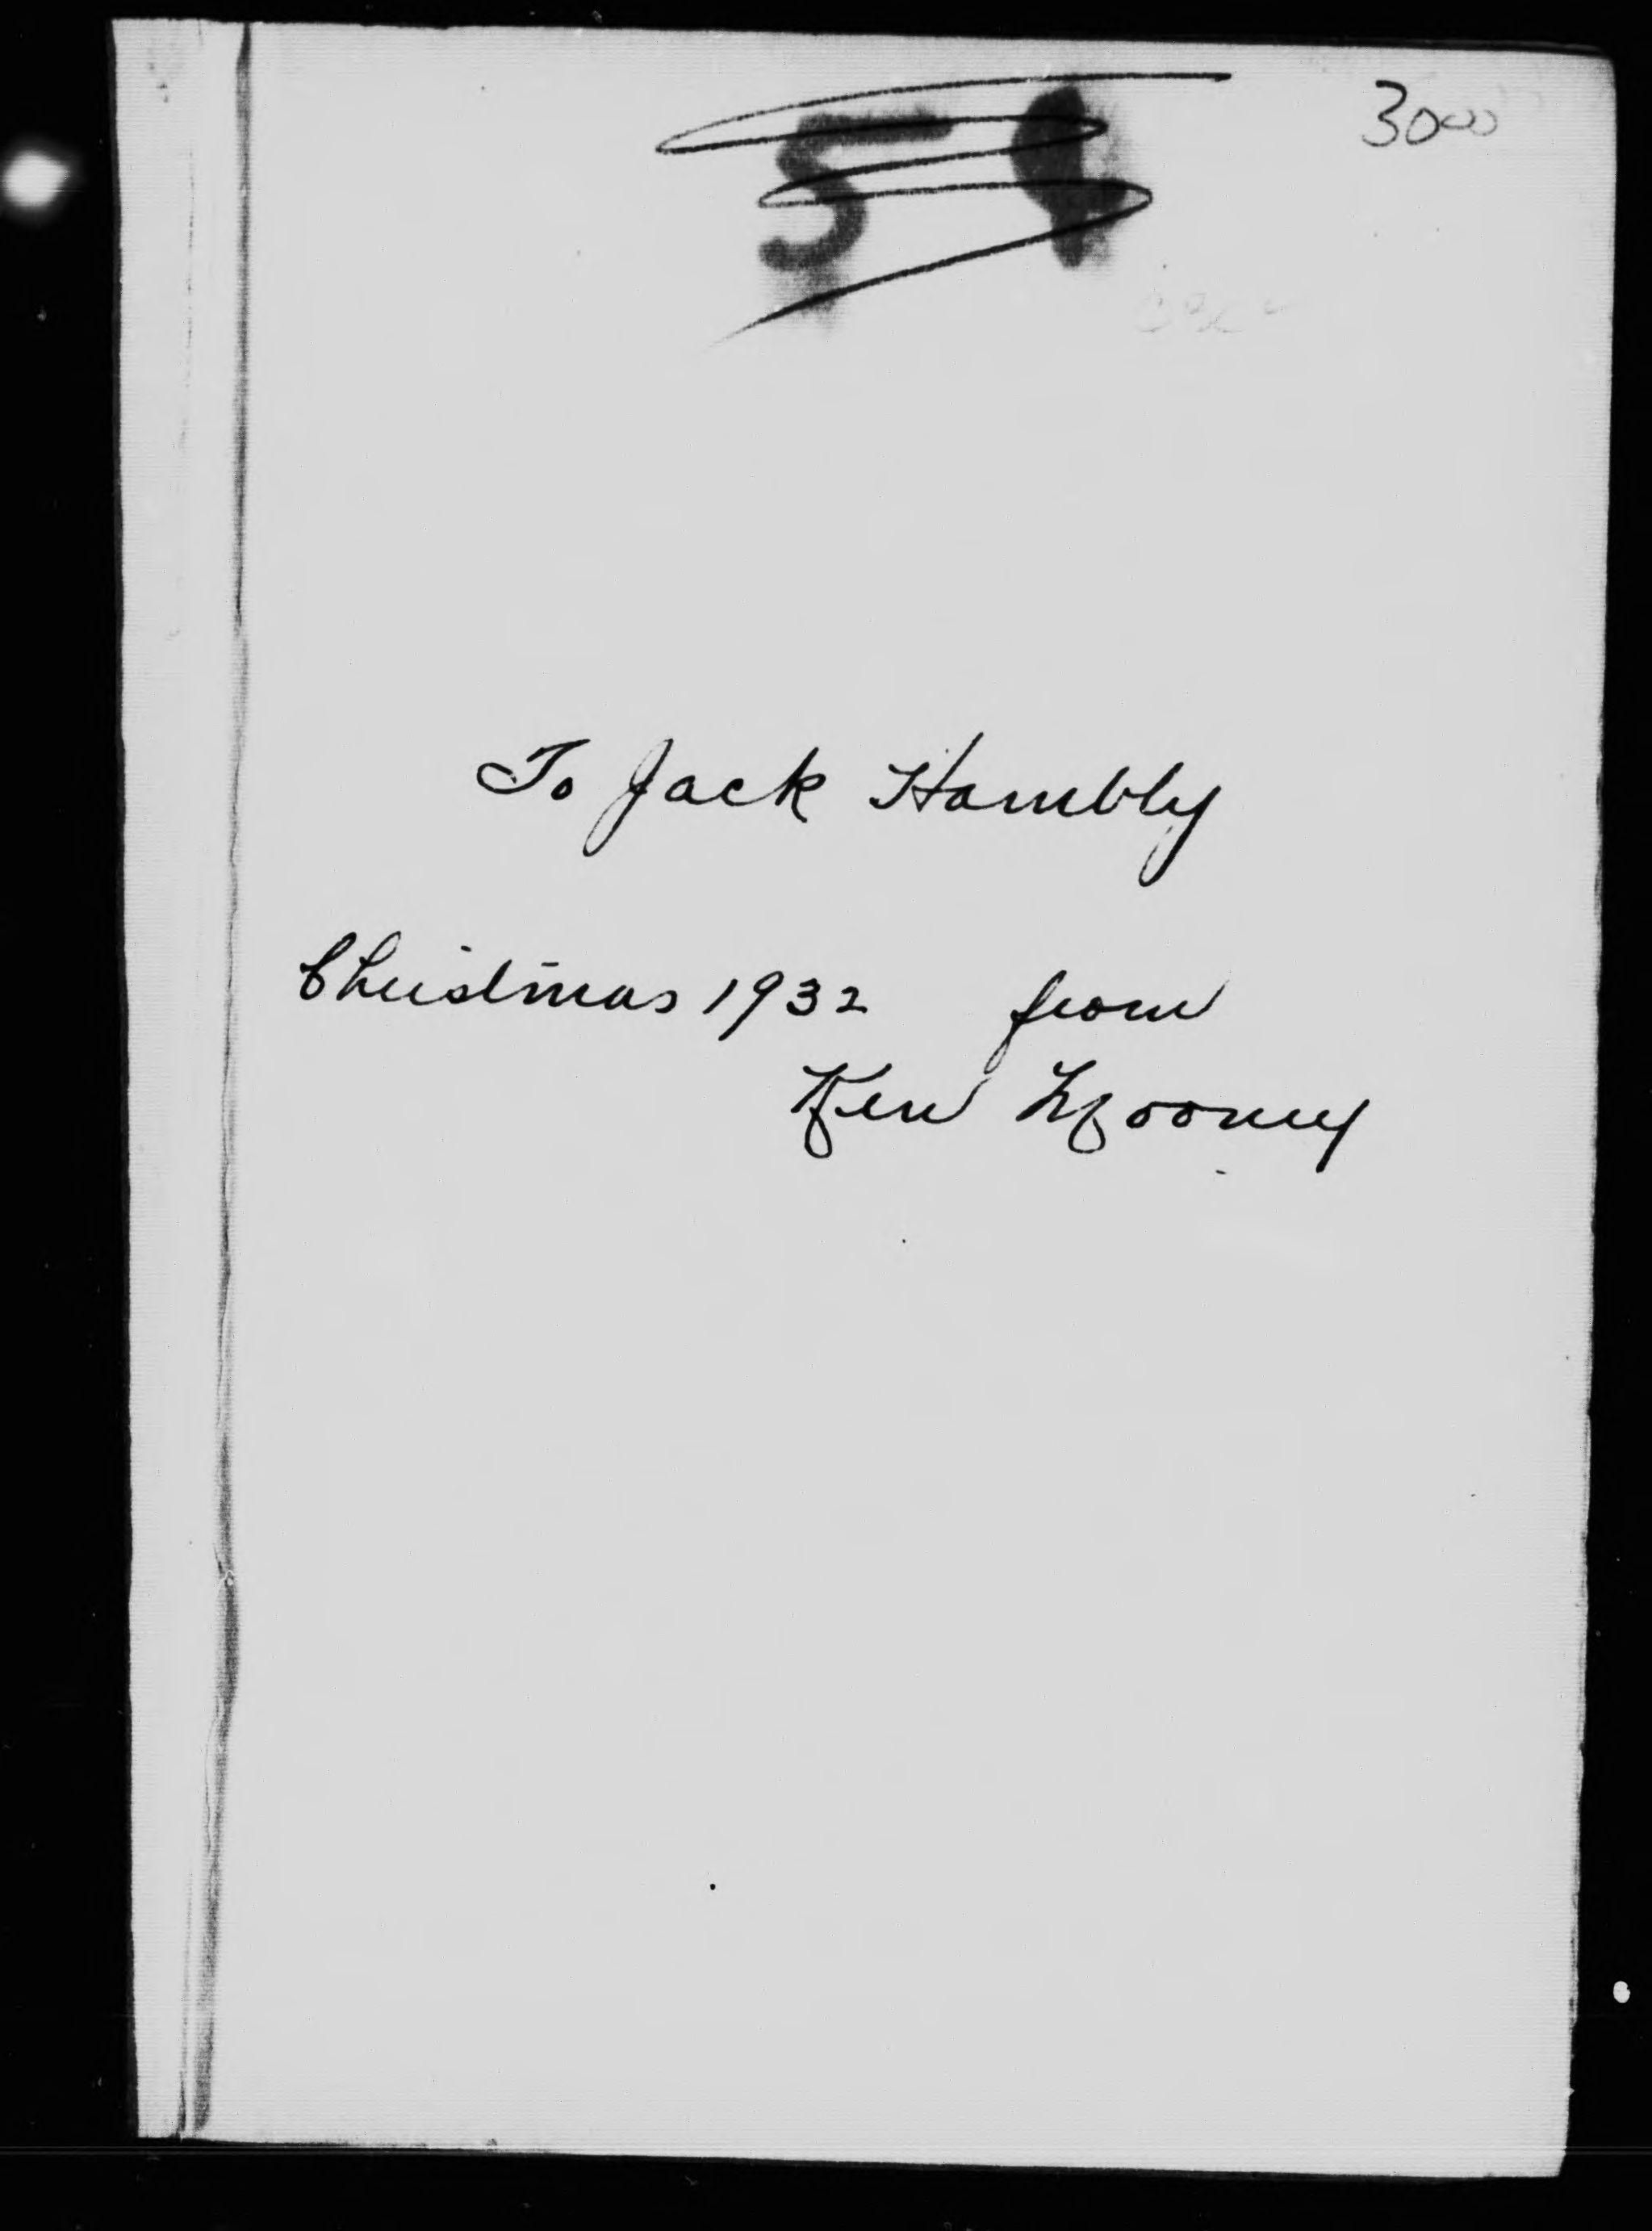 3000
To Jack Hambly
Christmas 1932 from
Ken Mooney